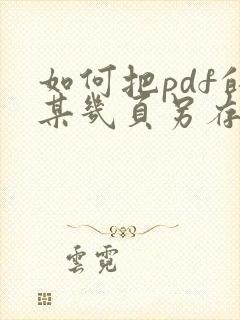 如何把pdf的
某幾頁另存
雲霓